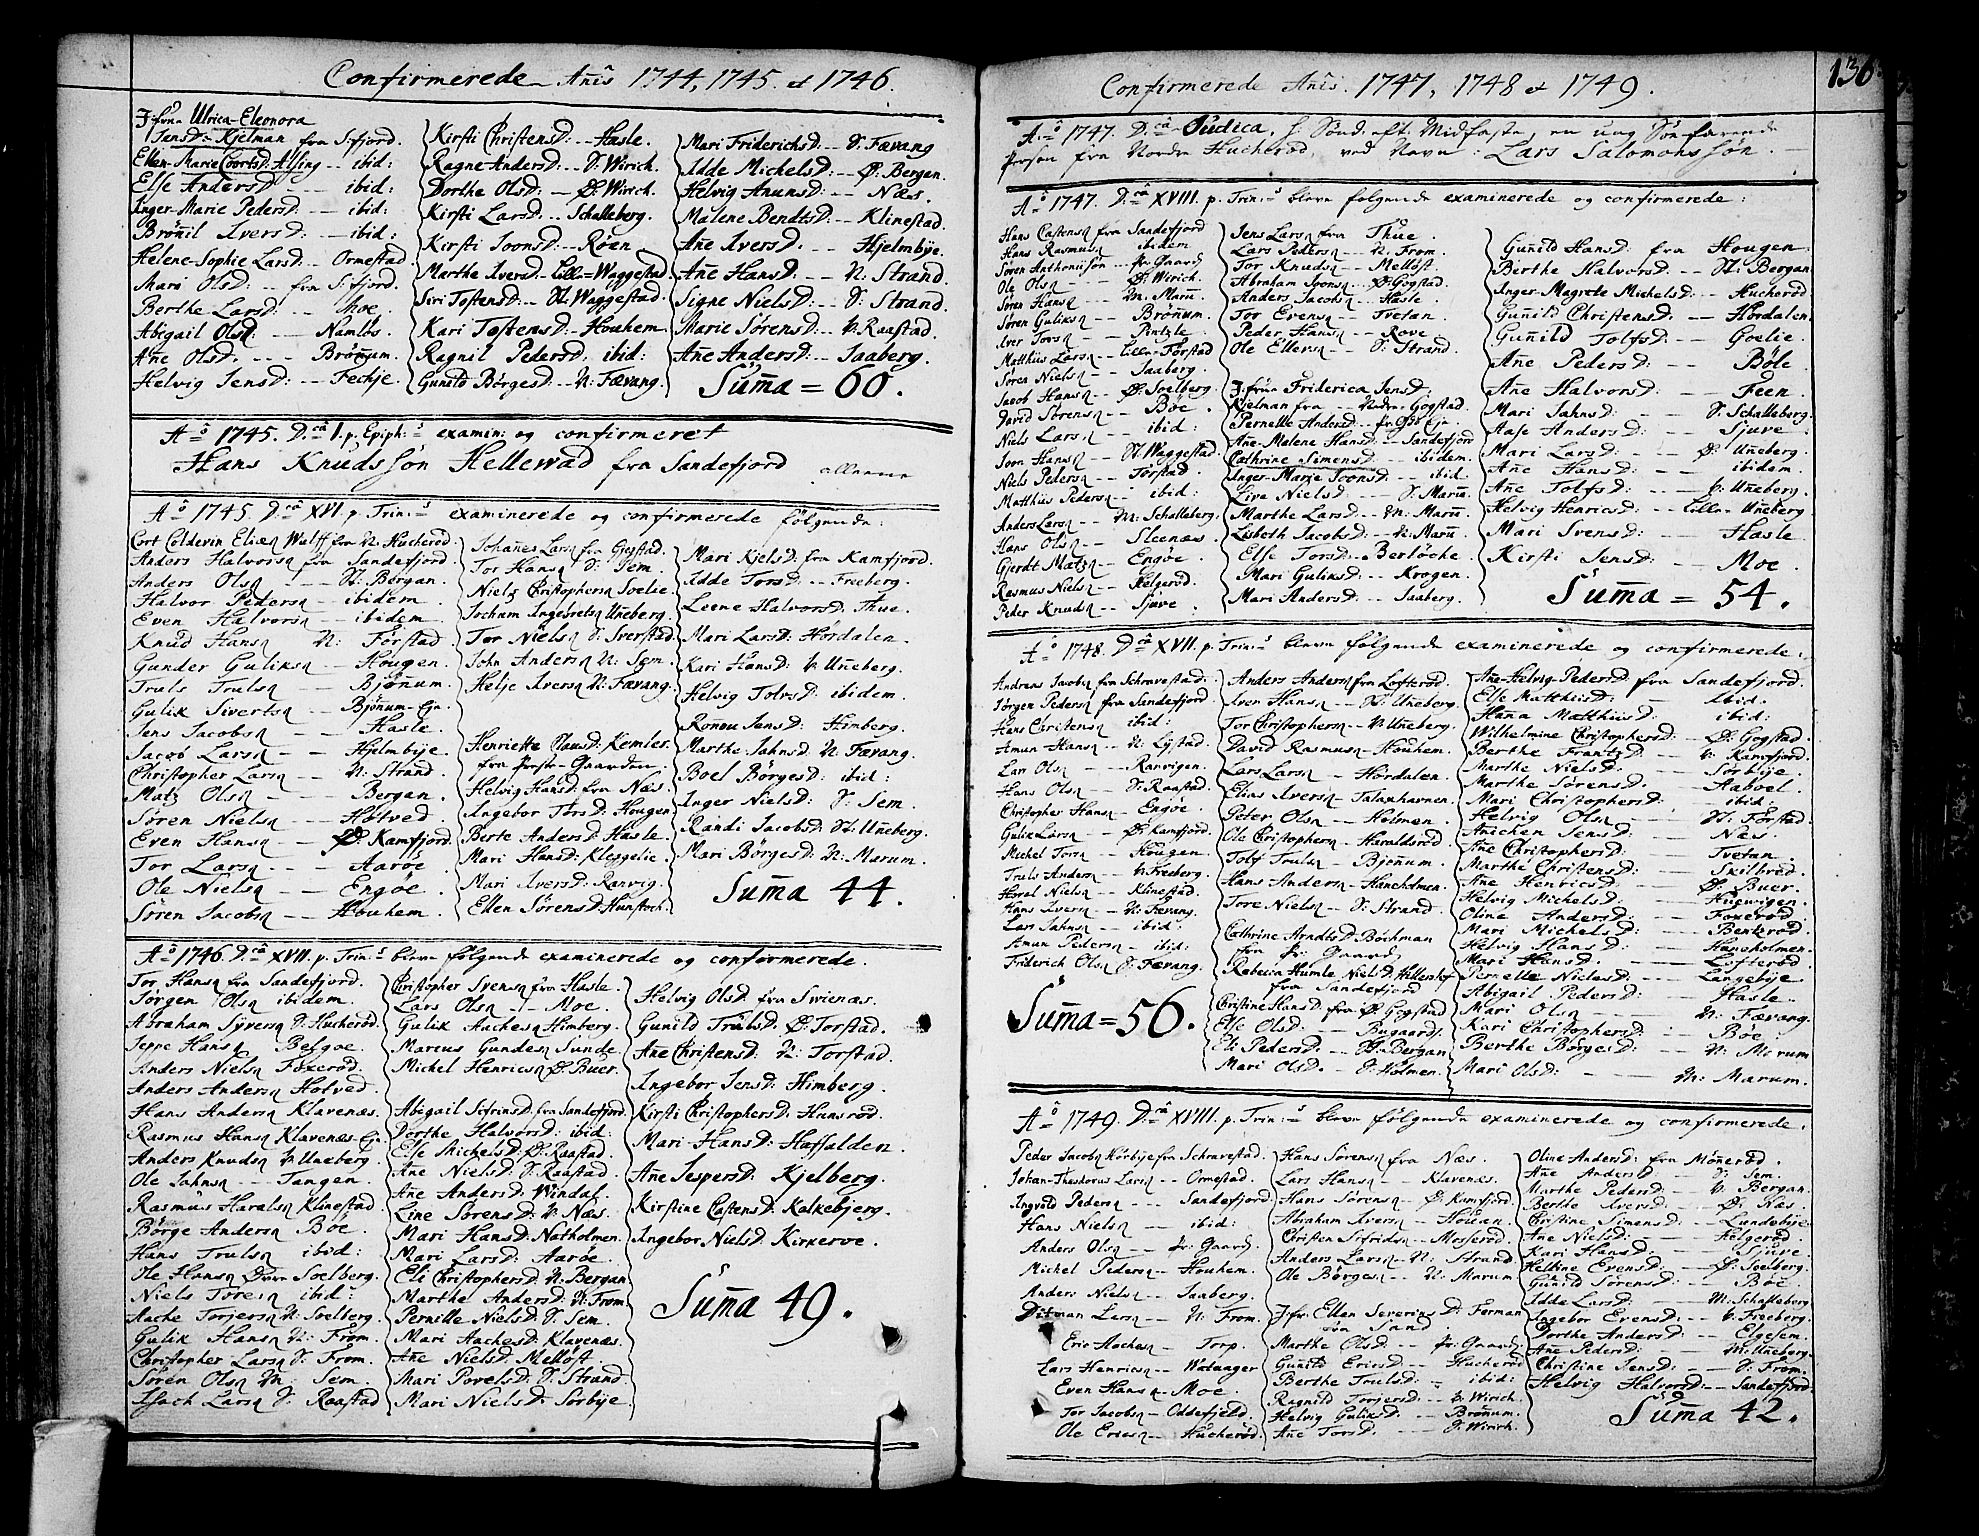 Confirmerede Anis 1744, 1745. et 1746.
Jfrue Ulrica-Eleonora
Jensd: Kjelman fra S:fjord.
Ellen-Marie Coortsd: Alsing -- ibid:
Else Andersd: -- ibid:
Inger-Marie Pedersd: -- ibid:
Brönil Iversd: -- ibid:
Helene-Sophie Larsd: -- Ormestad
Mari Olsd: -- fra S:fjord.
Berthe Larsd: -- Moe.
Abigail Olsd: -- Namlös.
Añe Olsd: -- Brönum.
Helvig Jensd: -- Fechje.
Kirsti Christensd: -- Hasle.
Ragne Andersd: -- S: Wirich.
Dorthe Olsd: -- Ø: Wirich.
Kirsti Larsd: -- Schalleberg.
Kirsti Joonsd: -- Röen.
Marthe Iversd: -- Lille-Waggestad
Siri Tostensd: -- St: Waggestad.
Kari Tostensd: -- Houhem.
Ragnil Pedersd: ibid:
Gunild Börgesd: -- N: Fævang.
Mari Friderichsd: -- S: Fævang
Idde Michelsd: -- Ø: Bergan.
Helvig Amunsd: -- Næs.
Malene Bendtsd: -- Klinestad.
Añe Iversd: -- Hjelmbye.
Añe Hansd: -- N: Strand.
Signe Nielsd: -- S: Strand.
Marie Sörensd: -- V: Raastad.
Añe Andersd: -- Saaberg.
Suma = 60.
Aō 1745. D:câ I. p. Epiph:s examin: og confirmeret
Hans Knudssön Hellewad fra Sandefjord allene
Aō 1745 D:câ XVI. p. Trin:s examinerede og confirmerede fölgende:
Cort Coldevin Eliæs Wulff fra N: Hucheröd.
Anders Halvorsn fra Sandefjord.
Anders Olsn -- St: Bergan.
Halvor Pedersn -- ibidem.
Even Halvorsn -- ibidem.
Knud Hansn N: Forstad.
Gunder Guliksn -- Hougen.
Truls Trulsn -- Bjönum.
Gulik Sivertsn -- Bjönum-Eje.
Jens Jacobsn -- Hasle.
Jacob Larsn -- Hjelmbye.
Christopher Larsn -- N: Strand.
Matz Olsn -- Bergan.
Sören Nielsn -- Hotved.
Even Hansn -- Ø: Kamfjord.
Tor Larsn -- Aaröe.
Ole Nielsn -- Engöe.
Sören Jacobsn -- Houhem.
Johañes Larsn fra Gogstad.
Tor Hansn S: Sem.
Niels Christophersn Soelie.
Jocham Ingebretsn Uneberg.
Tor Nielsn S: Sverstad.
John Andersn N: Sem.
Helje Iversn N: Fævang.
Henriette Clausd: Kemler.
fra Præste-Gaarden.
Helvig Hansd: fra Næs.
Ingebor Torsd: Hougen
Berte Andersd: Hasle.
Mari Hansd: Klepgelie.
Mari Iversd: Ranvig.
Ellen Sörensd: Hunstoch.
Mari Kjelsd: fra Kamfjord.
Idde Torsd: -- Freberg.
Leene Halvorsd: Thue.
Mari Larsd: Hördalen.
Kari Hansd: V: Uneberg.
Helvig Tolvsd: ibidem.
Ronou Jensd: Himberg.
Marthe Jahnsd: N: Fævang.
Boel Börgesd: ibid:
Inger Nielsd: S: Sem.
Randi Jacobsd: St: Uneberg.
Mari Börgesd: N: Marum.
Suma 44.
Aō 1746. D:câ XVII. p. Trin:s bleve fölgende examinerede og confirmerede.
Tor Hansn fra Sandefjord.
Jörgen Olsn ibidem.
Abraham Syversn S: Hucheröd.
Jeppe Hansn Bessoe.
Anders Nielsn Foxeröd.
Anders Andersn Hotved.
Hans Andersn Klavenæs.
Rasmus Hansn Klavenæs-Eje
Anders Knudsn V: Uneberg.
Ole Jahnsn -- Tangen.
Rasmus Haralsn Klinestad.
Börge Andersn Böe.
Hans Trulsn ibid:
Ole Hansn Øvre Soelberg.
Niels Toresn ibid:
Aache Torjersn N: Soelberg.
Gulik Hansn N: From.
Christopher Larsn S: From.
Sören Olsn M: Sem.
Isach Larsn S: Raastad
Christopher Svensn fra Hasle.
Lars Olsn -- Moe.
Gulik Aachesn Himberg.
Marcus Gundersn Sunde.
Michel Henricsn Ø: Buer.
Abigail Sifrinsd: fra Sandefjord.
Dorthe Halvorsd: ibid:
Else Michelsd: Ø: Raastad.
Añe Nielsd: S: Raastad.
Añe Andersd: Windal.
Line Sörensd: V: Næs.
Mari Hansd: Natholmen.
Mari Larsd: Aaröe.
Eli Christophersd: N: Bergan
Marthe Andersd: N: From.
Pernille Nielsd: S: Sem.
Mari Aachesd: Klavenæs.
Añe Nielsd: Mellöst.
Mari Povelsd: S: Strand.
Mari Nielsd: Sörbye.
Helvig Olsd: fra Svienæs.
Gunild Trulsd: Ø: Torstad.
Añe Christensd: N: Torstad.
Ingebor Jensd: Himberg.
Kirsti Christophersd: Hansröd.
Mari-Hansd: Hassalden.
Añe Jespersd: Kjelberg.
Kirstine Castensd: Kalkebjerg.
Ingebor Nielsd: Kirkerve.
Suma 49.
136
Confirmerede Anis. 1747, 1748 et 1749.
Aō 1747. D:câ Judica, s: Sönd: eft: Midfaste, en ung Söefarende
Person fra Nordre Hucheröd, ved Navn: Lars Salomonssön.
Aō 1747. D:câ XVIII. p. Trin:s bleve fölgende examinerede og confirmerede:
Hans Castensn fra Sandefjord
Hans Rasmusn ibidem
Sören Anthoniisön -- Pr: Gaard
Ole Olsn -- Ø: Wirich.
Sören Hansn -- N: Marū.
Sören Guliksn -- Brönum.
Iver Torsn -- Pintzle.
Matthias Larsn -- Lille-Forstad
Sören Nielsn -- Saaberg.
Jacob Hansn -- Ø: Soelberg.
David Sörensn -- Böe.
Niels Larsn -- ibid:
Joen Hansn -- St: Waggestad.
Niels Pedersn -- Torstad.
Matthias Pedersn -- ibid:
Anders Larsn -- M: Schalleberg.
Hans Olsn -- Sleenæs.
Gierdt Matzn -- Engöe.
Rasmus Nielsn -- Helgeröd.
Peder Knudsn -- Sjuve.
Jens Larsn fra Thue.
Lars Pedersn -- N: From.
Tor Knudsn -- Mellöst.
Abraham Joonsn -- Ø: Gogstad.
Anders Jacobsn -- Hasle.
Tor Evensn -- Tvetan.
Peder Hansn -- Rove.
Ole Ellevsn -- S: Strand.
Jfrue Friderica Jensd:
Kjelman fra -- Nedre-Gogstad.
Pernelle Andersd: -- Pr: Gds Eje
Añe-Malene Hansd: -- Sandefjord
Cathrine Simensd: -- ibidem.
Inger-Marie Joonsd: -- ibid.
Live Nielsd: -- S: Marū.
Marthe Larsd: -- N: Marū.
Lisbeth Jacobsd: -- N: Marū.
Else Torsd: -- Berlöche
Mari Guliksd: -- Krogen.
Mari Andersd: -- Saaberg.
Gunild Hansd: fra Hougen.
Berthe Halvorsd: -- St: Bergan
Inger-Magrete Michelsd: -- Hucheröd
Gunild Christensd: -- Hördalen.
Gunild Tolfsd: -- Goelie.
Añe Pedersd: -- Böle.
Añe Halvorsd: -- Feen.
Mari Jahnsd: -- S: Schalleberg.
Aase Andersd: -- Sjuve.
Mari Larsd: -- Ø: Uneberg.
Añe Hansd: -- ibidem.
Añe Tolfsd: -- V: Uneberg.
Helvig Henricsd: -- Lille-Uneberg.
Mari Svensd: -- Hasle.
Kirsti Jensd: -- Moe.
Suma = 54.
Aō 1748. D:câ XVII. p. Trin:s bleve fölgende examinerede og confirmerede:
Andreas Jacobsn fra Schravestad.
Jörgen Pedersn fra Sandefjord.
Hans Christensn ibid:
Amun Hansn -- N: Lystad.
Lars Olsn -- Ranvigen.
Hans Olsn -- S: Raastad.
Christopher Hansn -- Engöe.
Gulik Larsn -- Ø: Kamfjord.
Michel Torsn -- Hougen.
Truls Andersn -- V: Freberg.
Haral Nielsn -- Klinestad.
Hans Iversn -- N: Fævang.
Lars Jahnsn -- ibid:
Amun Pedersn -- ibid:
Friderich Olsn S: Fævang.
Suma = 56.
Anders Andersn fra Lofteröd.
Iver Hansn -- St: Uneberg.
Tor Christophersn -- V: Uneberg.
David Rasmusn -- Houhem.
Lars Larsn -- Hördalen.
Elias Iversn -- Talaxhavnen.
Peter Olsn -- Holmen.
Ole Christophersn -- Haraldsröd.
Tolf Trulsn -- Bjönum.
Hans Andersn -- Haneholmen.
Tore Nielsn -- S: Strand.
Cathrine Arndtsd: Bochman
fra Pr: Gaard.
Rebecca Humle Nielsd: Hillerslef
fra Sandefjord
Christine Hansd: fra Ø: Gogstad
Else Olsd: -- Bugaard.
Eli Pedersd: -- St: Bergan
Mari Olsd: -- S: Holmen.
Añe-Helvig Pedersd: fra Sandefjord.
Else Matthiisd: -- ibid.
Hana Matthiisd: ibid:
Wilhelmine Christophersd: -- Ø: Gogstad.
Berthe Frantzd: -- V: Kamfjord.
Marthe Nielsd: -- Sörbye.
Marthe Sörensd: -- Aaboel.
Mari Christophersd: -- ibid.
Helvig Olsn -- St: Forstad.
Anichen Jensd: -- Næs.
Añe Christophersd: -- Tvetan.
Marthe Christensd: -- Skilbred.
Añe Henricsd: -- Ø: Buer.
Helvig Michelsd: -- Huevigen.
Oline Andersd: -- Foxeröd.
Mari Michelsd: -- Bentzröd
Helvig Hansd: -- Haneholmen.
Mari Hansd: -- Lofteröd
Pernelle Nielsd: -- Langebye.
Abigail Pedersd: -- Hasle.
Mari Olsn -- N: Fævang.
Kari Christophersd: -- Böe.
Berthe Börgesd: -- N: Marum
Mari Olsd: -- N: Marum.
Aō 1749. D:câ XVIII. p. Trin:s bleve fölgende examinerede og confirmerede.
Peder Jacobsn Nordbye fra Schravestad.
Johan-Theodorus Larsn -- Ormestad.
Ingvold Pedersn -- Sandefjord.
Hans Nielsn -- ibid:
Anders Olsn -- Pr: Gaard.
Michel Pedersn -- Houhem.
Anders Nielsn -- Saaberg.
Ditman Larsn -- N: From.
Eric Aachesn -- Torp.
Lars Henricsn -- Watvager
Even Hansn -- Moe.
Tor Jacobsn -- Oddefjeld.
Ole Ericsn -- Hucheröd.
Hans Sörensn fra Næs.
Lars Hansn -- Klavenæs.
Hans Sörensn -- Ø: Kamfjord
Abraham Iversn -- Houcan.
Christen Sifridsn -- Mosseröd.
Anders Larsn -- N: Strand.
Ole Börgesn -- N: Marum
Jfr: Ellen Severine D: Forman
Marthe Olsd: -- Pr: Gaard.
Gunild Ericsd: -- Hucheröd
Berthe Trulsd: -- ibid:
Ragnild Torjersd: -- V: Wirich.
Helvig Guliksd: -- Brönum.
Añe Torsd: -- S: Wirich.
Oline Andersd: fra Moneröd.
Añe Andersd: -- S: Sem.
Marthe Pedersd: -- V: Bergan.
Berthe Iversd: -- Ø: Næs.
Christine Simensd: -- Lundebye
Añe Nielsd: -- Helgeröd.
Kari Hansd: -- Sjuve.
Helline Evensd: -- Ø: Soelberg.
Gunild Sörensd: -- Böe.
Idde Larsd: -- M: Schalleberg
Ingebor Evensd: -- V: Freberg.
Dorthe Andersd: -- Elgesem.
Añe Pedersd: -- M: Uneberg.
Christine Jensd: -- S: From.
Helvig Halvorsd: -- Sandefjord.
Suma 42.